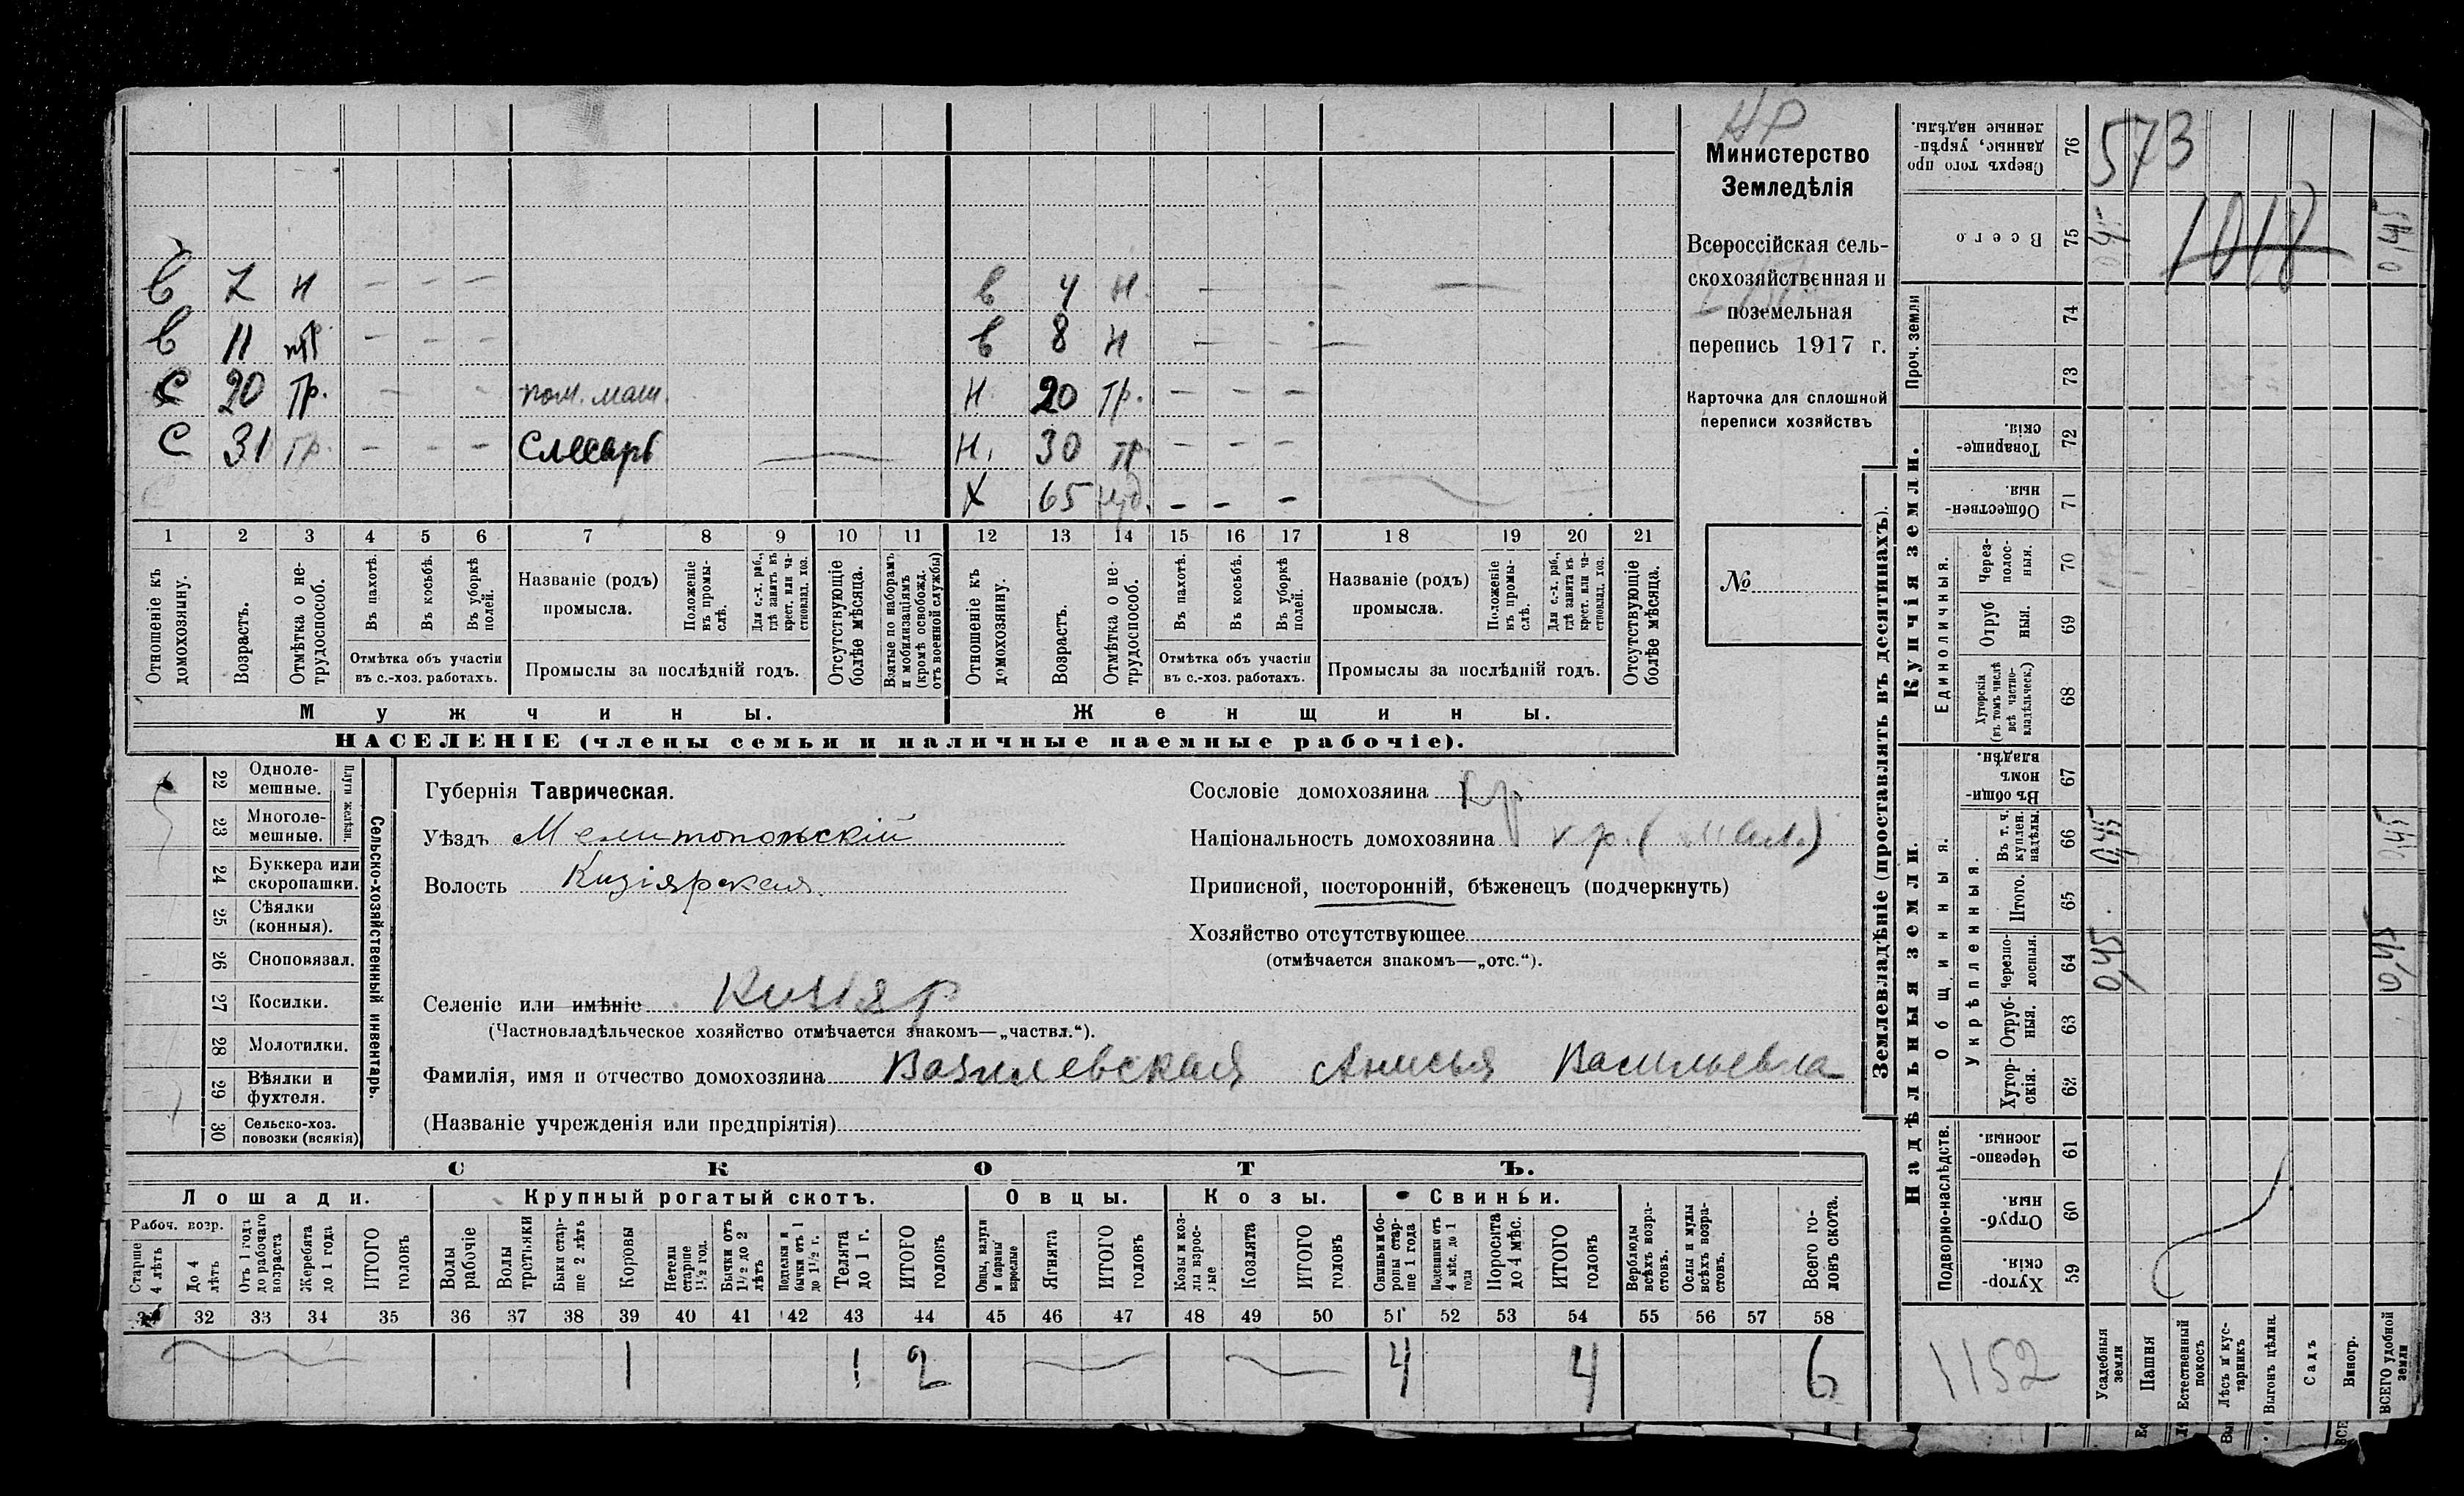 НР
Министерство
Земледѣлія
Всероссійская сель-
скохозяйственная и
поземельная
перепись 1917 г.
Карточка для сплошной
переписи хозяйствъ
№
в 7 н — — —
в 11 — — —
с 20 тр. — — пом. маш.
с 31 тр. — — — слесарь
в 4 н. — — —
в 8 н — — —
н 20 тр. — — —
н. 30 тр — — —
х 65 — — —
1 2 3 4 5 6 7 8 9 10 11 12 13 14 15 16 17 18 19 20 21
Отношеніе къ домохозяину.
Возрастъ.
Отмѣтка о не-трудоспособ.
Въ пахотѣ.
Въ косьбѣ.
Въ уборкѣ полей.
Отмѣтка объ участіи въ с.-хоз. работахъ.
Названіе (родъ) промысла.
Положеніе въ промы-слѣ.
Для с.-х. раб., гдѣ занятъ въ крест. или ча-стновлад. хоз.
Промыслы за послѣдній годъ.
Отсутствующіе болѣе мѣсяца.
Взятые по наборамъ и мобилизаціямъ (кромѣ освобожд. отъ военной службы)
Отношеніе къ домохозяину.
Возрастъ.
Отмѣтка о не-трудоспособ.
Въ пахотѣ.
Въ косьбѣ.
Въ уборкѣ полей.
Отмѣтка объ участіи въ с.-хоз. работахъ.
Названіе (родъ) промысла.
Положеніе въ промы-слѣ.
Для с.-х. раб., гдѣ занята въ крест. или ча-стновлад. хоз.
Промыслы за послѣдній годъ.
Отсутствующіе болѣе мѣсяца.
Мужчины.
Женщины.
НАСЕЛЕНІЕ (члены семьи и наличные наемные рабочіе).
Сельско-хозяйственный инвентарь.
Плуги желѣзн.
22 Одноле-мешные.
23 Многоле-мешные.
24 Буккера или скоропашки.
25 Сѣялки (конныя).
26 Сноповязал.
27 Косилки.
28 Молотилки.
29 Вѣялки и фухтеля.
30 Сельско-хоз. повозки (всякія)
Губернія Таврическая.
Уѣздъ Мелитопольскій
Волость Кизіярская
Селеніе или имѣніе Кизіяр
(Частновладѣльческое хозяйство отмѣчается знакомъ—„частвл.“).
Фамилія, имя и отчество домохозяина Вазилевская Анисья Васильевна
(Названіе учрежденія или предпріятія)
Сословіе домохозяина кр
Національность домохозяина
Приписной, посторонній, бѣженецъ (подчеркнуть)
Хозяйство отсутствующее
(отмѣчается знакомъ—„отс.“).
СКОТЪ.
Лошади.
Крупный рогатый скотъ.
Овцы.
Козы.
Свиньи.
Рабоч. возр.
Старше 4 лѣтъ
До 4 лѣтъ
Отъ 1 года до рабочаго возраста
Жеребята до 1 года
ИТОГО головъ
Волы рабочіе
Волы третьяки
Быки стар-ше 2 лѣтъ
Коровы
Нетели старше 1½ год.
Бычки отъ 1½ до 2 лѣтъ
Подтелки и бычки отъ 1 до 1½ г.
Телята до 1 г.
ИТОГО головъ
Овцы, валухи и бараны взрослые
Ягнята
ИТОГО головъ
Козы и коз-лы взрос-лые
Козлята
ИТОГО головъ
Свиньи и бо-ровы стар-ше 1 года
Подсвинки отъ 4 мѣс. до 1 года
Поросята до 4 мѣс.
ИТОГО головъ
Верблюды всѣхъ возра-стовъ.
Ослы и мулы всѣхъ возра-стовъ.
Всего го-ловъ скота.
32 33 34 35 36 37 38 39 40 41 42 43 44 45 46 47 48 49 50 51 52 53 54 55 56 57 58
1 1 2 4 4 6
Землевладѣніе (проставлять въ десятинахъ).
Сверхъ того про данные, укрѣп-ленные надѣлы. 76
573
Всего 75
0,45
1018
0,45
Проч. земли
74
73
Купчія земли.
Товарище-скія. 72
Обществен-ныя. 71
Единоличныя.
Через-полос-ныя. 70
Отруб ныя. 69
Хуторскія (въ томъ числѣ всѣ частно-владѣльческ.) 68
Надѣльныя земли.
Общинныя.
Въ общи-номъ владѣн. 67
Укрѣпленныя.
Въ т. ч. куплен. надѣлы. 66
0,45
0,45
Итого. 65
Черезпо-лосныя. 64
0,45
0,45
Отруб-ныя. 63
Хутор-скія. 62
Подворно-наслѣдств.
Черезпо-лосныя. 61
Отруб-ныя. 60
Хутор-скія. 59
1152
Усадебныя земли
Пашня
Естественный покосъ
Лѣсъ и кус-тарникъ
Выгонъ цѣлин.
Садъ
Виногр.
ВСЕГО удобной земли